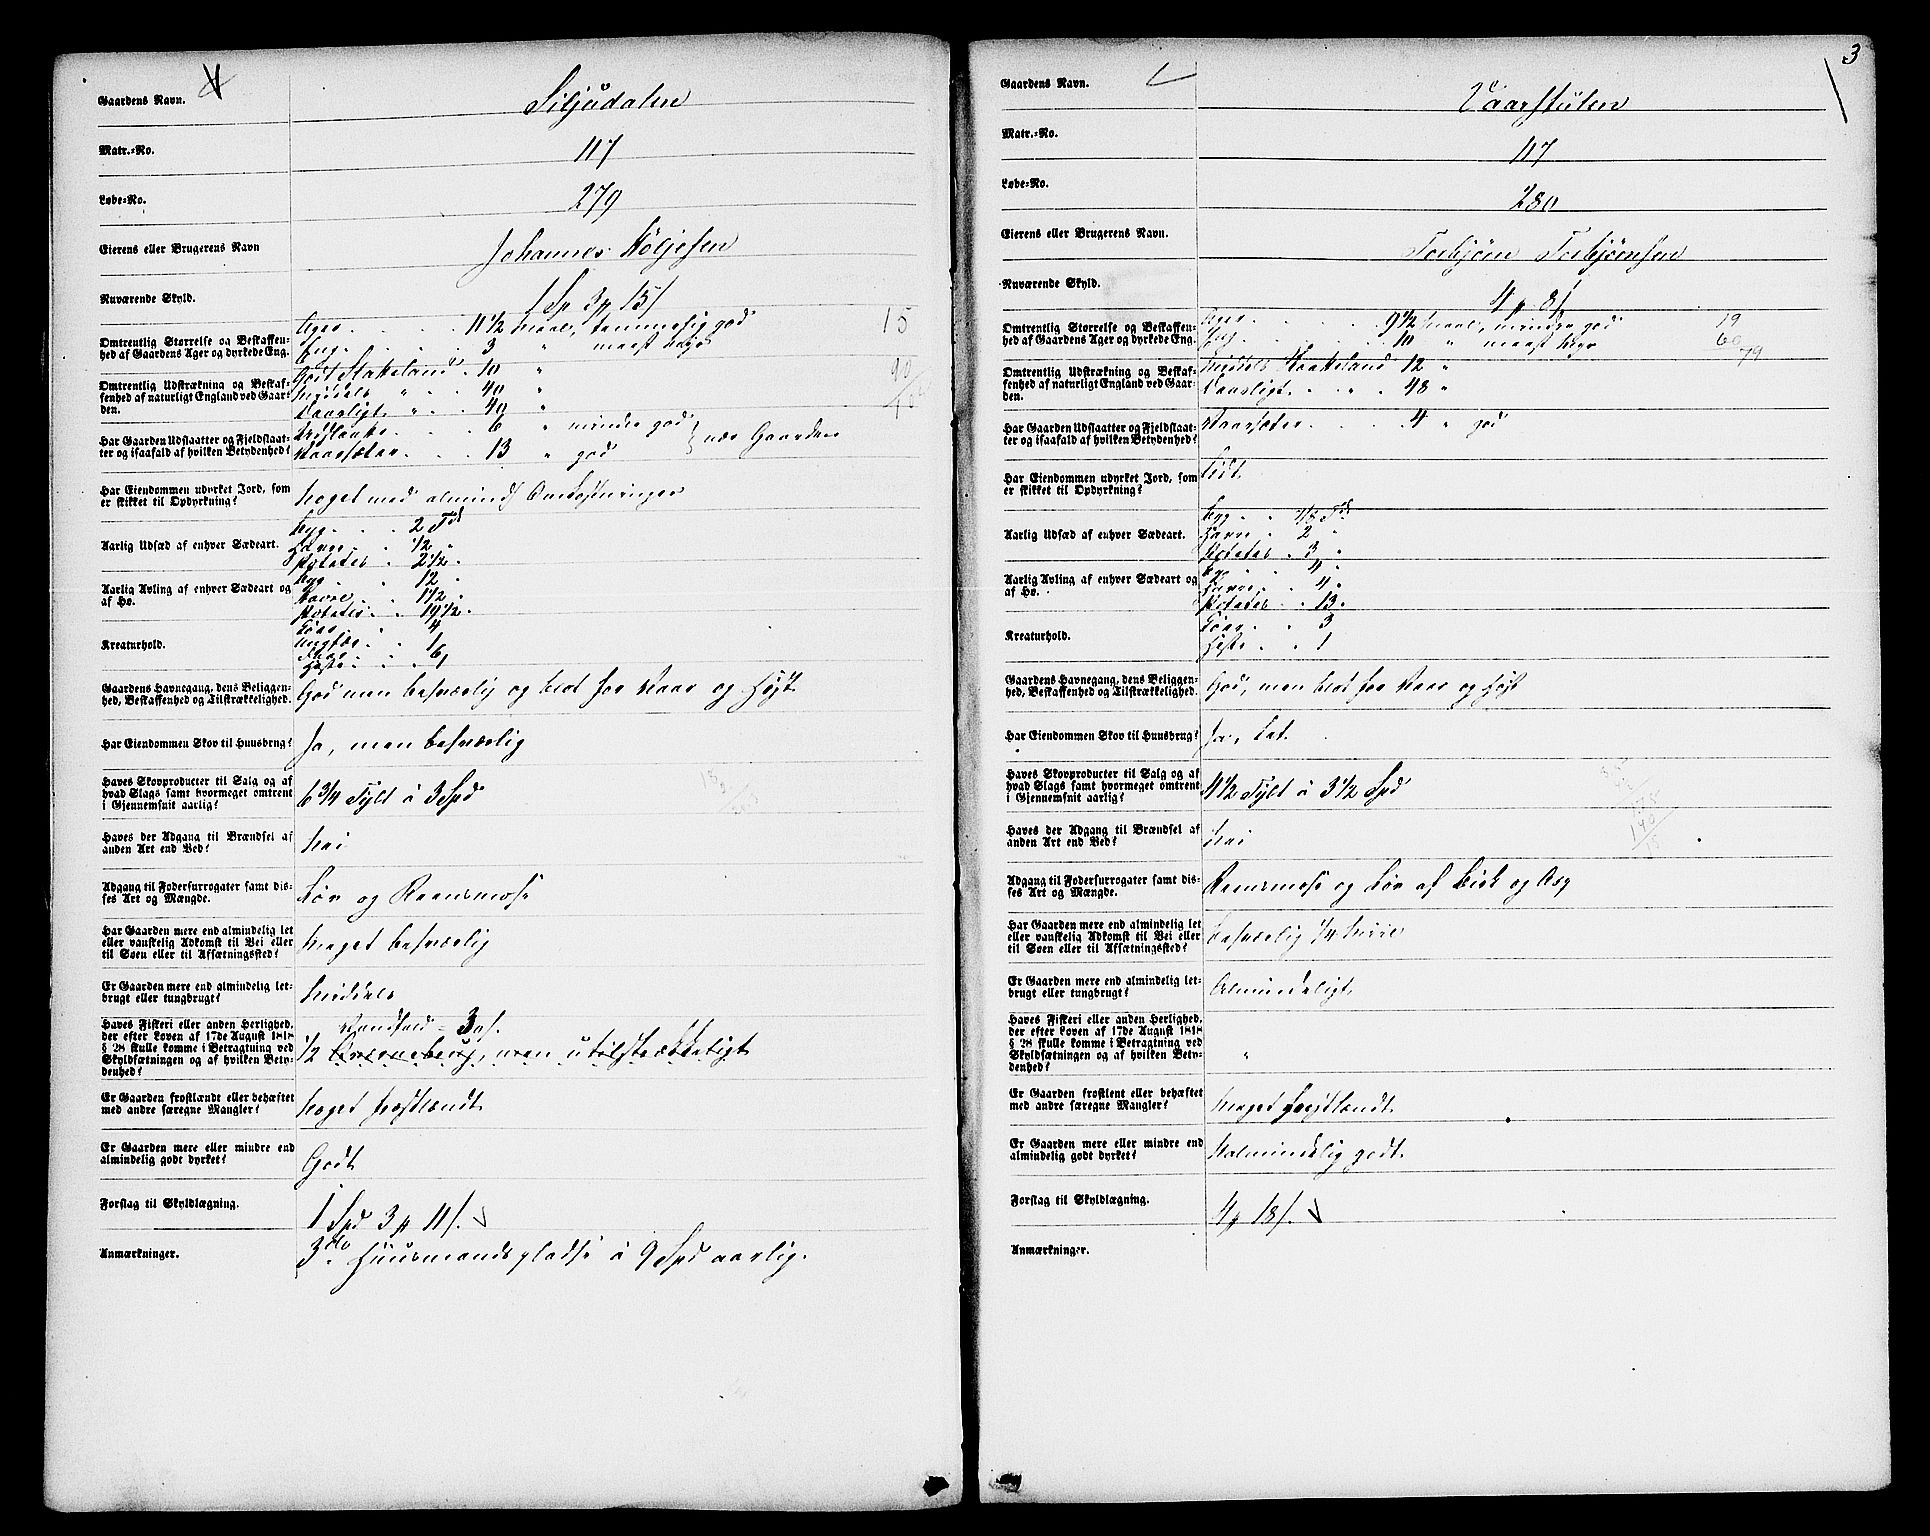 Gaardens Navn.
Siljudalen
Matr.=No.
117
Løbe=No.
279
Eierens eller Brugerens Navn
Johannes Kiljesen
Nuværende Skyld.
1 Sp 3 p 15 /
Omtrentlig Størrelse og Beskaffen-
hed af Gaardens Ager og dyrkede Eng.
Ager . . . . 11 1/2 Maal, temmelig god 15
Eng . . . . 3 " maast
Omtrentlig Udstrækning og Beskaf-
fenhed af naturligt England ved Gaar-
den.
Godt Slaatteland . 10 "
Middels " . . 40 " 90
Daarligt " . . 40 "
Har Gaarden Udslaatter og Fjeldslaat-
ter og isaafald af hvilken Betydenhed?
Udslaatte . . . 6 " mindre god
Vaarsæter . . . 13 " god } nær Gaarden
Har Eiendommen udyrket Jord, som
er skikket til Opdyrkning?
Noget med almind. Omkostninger
Aarlig Udsæd af enhver Sædeart.
Byg . . . 2 Td
Havre . . 1/2 "
Poteter . 2 1/2 .
Aarlig Avling af enhver Sædeart og
af Hø.
Byg . . 12 .
Havre . . 1 1/2 .
Poteter . . 19 1/2 .
Kreaturhold.
Kjør . . 4
Ungfæ . . 1
Faar . . 6
Heste . . 1
Gaardens Havnegang, dens Beliggen-
hed, Beskaffenhed og Tilstrækkelighed.
God men besværlig og let for Vaar og Høst
Har Eiendommen Skov til Huusbrug?
Ja, men besværlig
Haves Skovproducter til Salg og af
hvad Slags samt hvormeget omtrent
i Gjennemsnit aarlig?
6 3/4 Tylt a 3 Spd
Haves der Adgang til Brændsel af
anden Art end Ved?
Nei
Adgang til Fodersurrogater samt dis-
ses Art og Mængde.
Løv og Reensmose
Har Gaarden mere end almindelig let
eller vanskelig Adkomst til Vei eller
til Søen eller til Afsætningssted?
Meget besværlig
Er Gaarden mere end almindelig let-
brugt eller tungbrugt?
Middels
Haves Fiskeri eller anden Herlighed,
der efter Loven af 17de August 1818
§ 28 skulle komme i Betragtning ved
Skyldsætningen og af hvilken Bety-
denhed?
Vandfald = 30 /.
1/2 Qværnebrug, men utilstrækkeligt
Er Gaarden frostlændt eller behæftet
med andre særegne Mangler?
Noget frostlændt
Er Gaarden mere eller mindre end
almindelig godt dyrket?
Godt
Forslag til Skyldlægning.
1 Spd 3 p 11 /.
Anmærkninger.
3de Huusmandspladse a 9 Spd aarlig.
3
Gaardens Navn.
Vaarstulen
Matr.=No.
117
Løbe=No.
280
Eierens eller Brugerens Navn.
Torbjørn Torbjørnsen
Nuværende Skyld.
4 p 8 /
Omtrentlig Størrelse og Beskaffen-
hed af Gaardens Ager og dyrkede Eng.
Ager . . . . 9 1/2 Maal, mindre god 19
Eng . . . . 10 " maast 60
79
Omtrentlig Udstrækning og Beskaf-
fenhed af naturligt England ved Gaar-
den.
Middels Slaatteland 12 "
Daarligt . . " . 48 "
Har Gaarden Udslaatter og Fjeldslaat-
ter og isaafald af hvilken Betydenhed?
Vaarsæter . . . . 4 " god
Har Eiendommen udyrket Jord, som
er skikket til Opdyrkning?
Lidt
Aarlig Udsæd af enhver Sædeart.
Byg . . 7/8 Td
Havre . 2 "
Poteter . 3 "
Aarlig Avling af enhver Sædeart og
af Hø.
Byg . . 4 .
Havre . . 4 .
Poteter . . 13 .
Kreaturhold.
Kjør . . 3
Heste . . 1
Gaardens Havnegang, dens Beliggen-
hed, Beskaffenhed og Tilstrækkelighed.
God, men let for Vaar og Høst
Har Eiendommen Skov til Huusbrug?
Ja, let.
Haves Skovproducter til Salg og af
hvad Slags samt hvormeget omtrent
i Gjennemsnit aarlig?
4 1/2 Tylt a 3 1/2 Spd
Haves der Adgang til Brændsel af
anden Art end Ved?
Nei
Adgang til Fodersurrogater samt dis-
ses Art og Mængde.
Reensmose og Løv af Birk og Asp
Har Gaarden mere end almindelig let
eller vanskelig Adkomst til Vei eller
til Søen eller til Afsætningssted?
Besværlig 1/4 Miil
Er Gaarden mere end almindelig let-
brugt eller tungbrugt?
Almindeligt
Haves Fiskeri eller anden Herlighed,
der efter Loven af 17de August 1818
§ 28 skulle komme i Betragtning ved
Skyldsætningen og af hvilken Bety-
denhed?
"
Er Gaarden frostlent eller behæftet
med andre særegne Mangler?
Meget frostlændt
Er Gaarden mere eller mindre end
almindelig godt dyrket?
Halmindelig godt
Forslag til Skyldlægning.
4 p 18 /.
Anmærkninger.